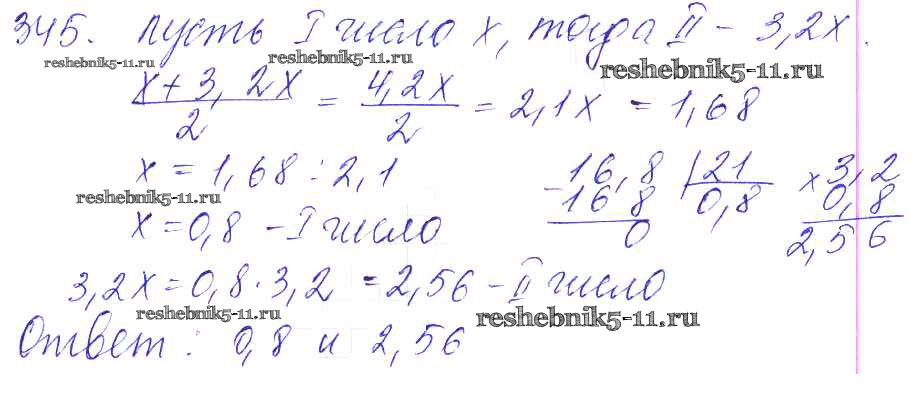 345. Пусть I число x, тогда II - 3,2x.
reshebnik5-11.ru reshebnik5-11.ru reshebnik5-11.ru
x+3,2x / 2 = 4,2x / 2 = 2,1x = 1,68
x = 1,68 : 2,1
reshebnik5-11.ru
x = 0,8 - I число
-16,8 | 21
16 8 0,8
0
x 3,2
0,8
2,56
3,2x = 0,8 · 3,2 = 2,56 - II число
reshebnik5-11.ru reshebnik5-11.ru
Ответ: 0,8 и 2,56